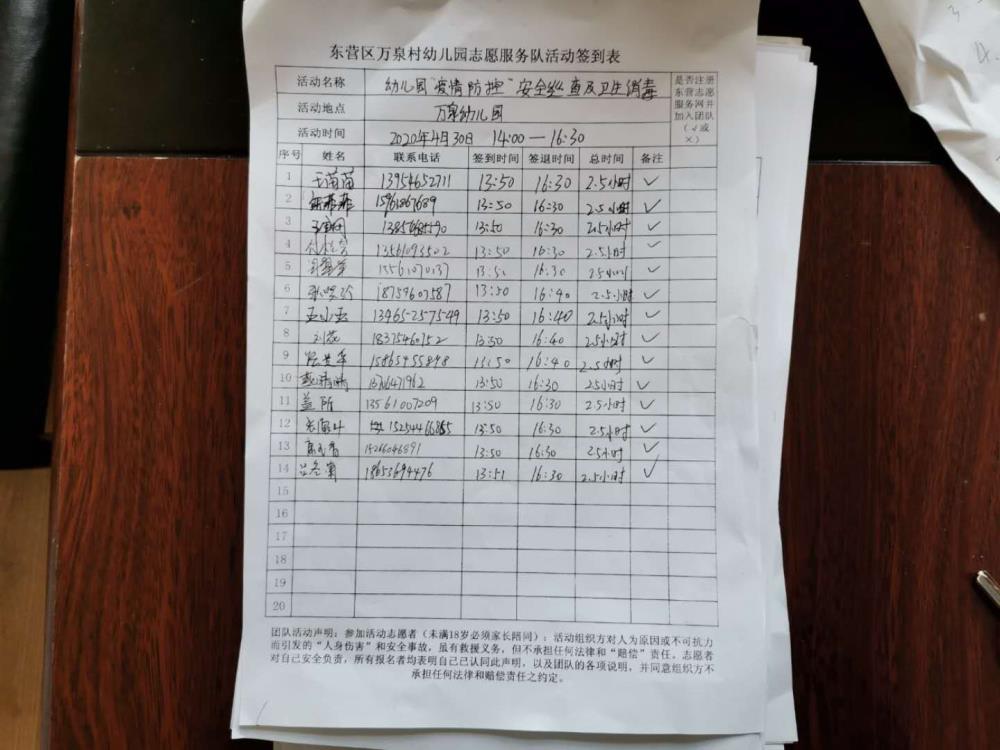 东营区万泉村幼儿园志愿服务队活动签到表
活动名称 幼儿园"疫情防控"安全检查及卫生消毒
是否注册东营志愿服务网并加入团队(√或×)
活动地点 万泉幼儿园
活动时间 2020年4月30日 14:00—16:30
序号 姓名 联系电话 签到时间 签退时间 总时间 备注
1 王苗苗 13954652711 13:50 16:30 2.5小时 ✓
2 15961867689 13:50 16:30 2.5小时 ✓
3 13:50 16:30 2.5小时 ✓
4 13561093502 13:50 16:30 2.5小时 ✓
5 13561070137 16:30 2.5小时 ✓
6 18759607587 13:50 16:40 2.5小时 ✓
7 孟小玉 13465257549 13:50 16:40 2.5小时 ✓
8 刘蕊 18375460752 13:50 16:40 2.5小时 ✓
9 15865955898 13:50 16:40 2.5小时 ✓
10 13706471962 13:50 16:30 2.5小时 ✓
11 13561007209 13:50 16:30 2.5小时 ✓
12 15254466855 13:50 16:30 2.5小时 ✓
13 15266046891 13:50 16:30 2.5小时 ✓
14 18653694476 13:51 16:30 2.5小时 ✓
15
16
17
18
19
20
团队活动声明:参加活动志愿者(未满18岁必须家长陪同):活动组织方对人为原因或不可抗力
而引发的“人身伤害”和安全事故,虽有救援义务,但不承担任何法律和“赔偿”责任。志愿者
对自己安全负责,所有报名者均表明自己已认同此声明,以及团队的各项说明,并同意组织方不
承担任何法律和赔偿责任之约定。